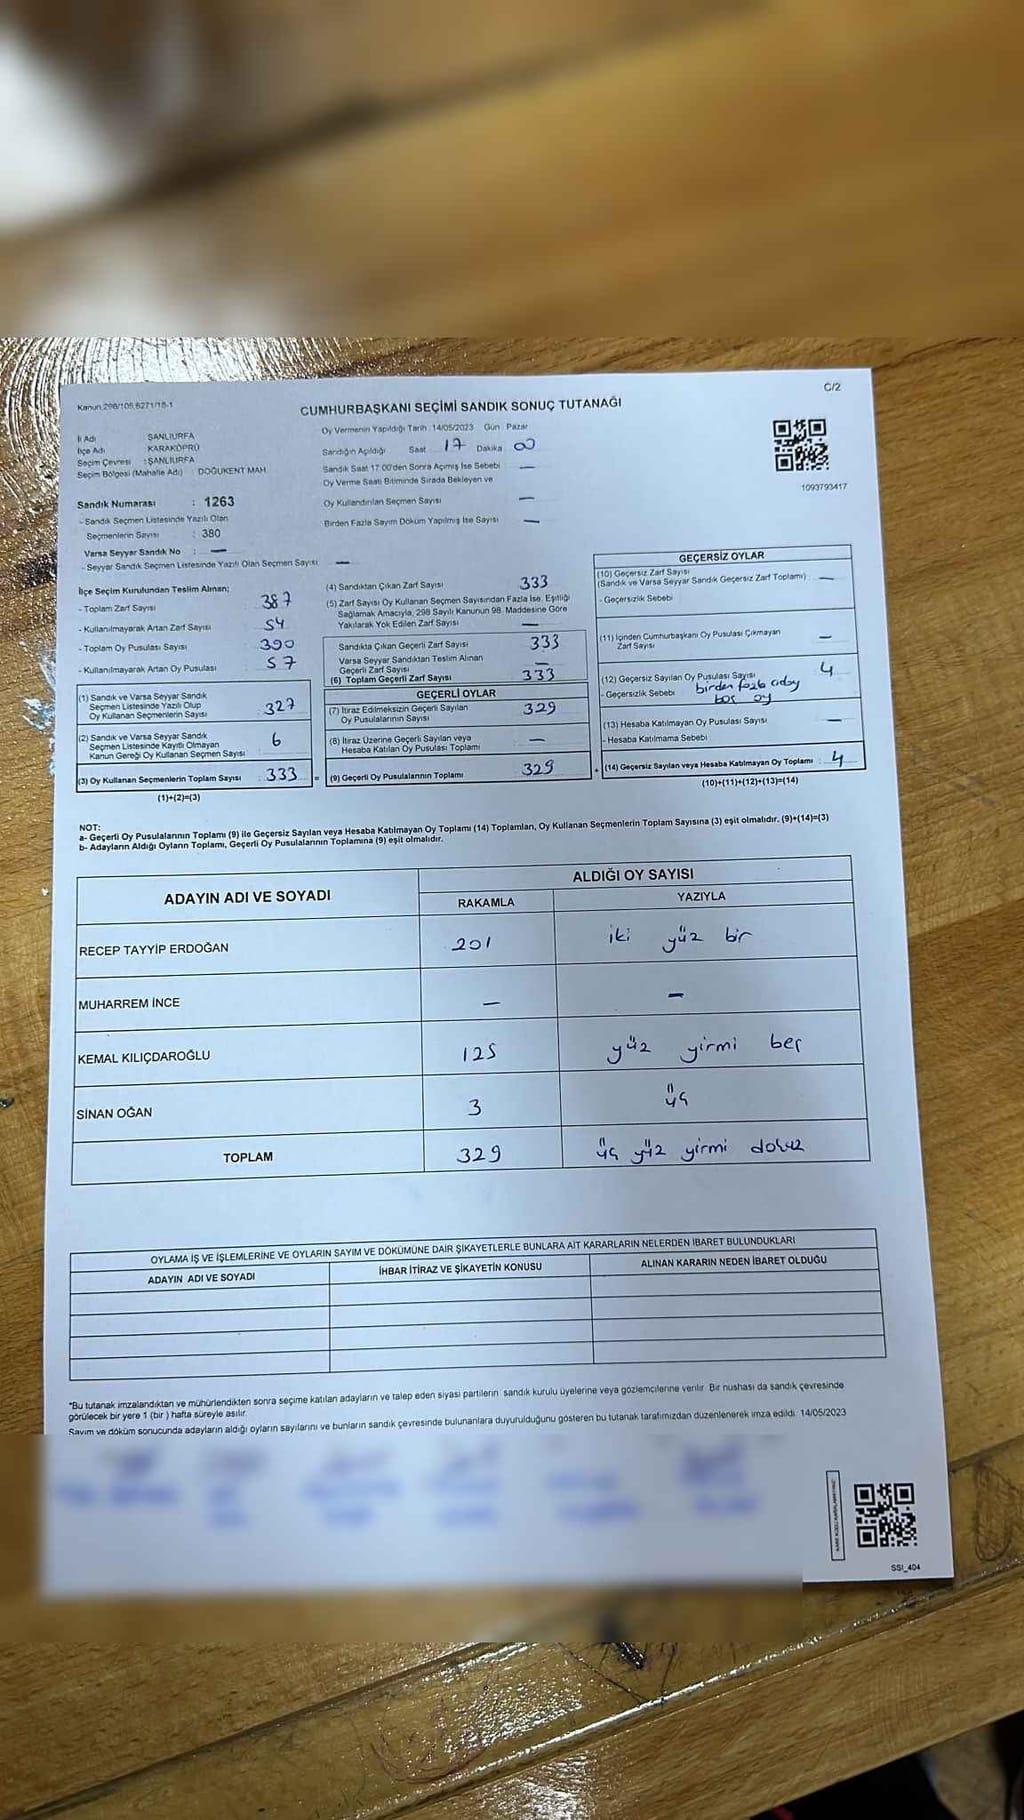 Kanun 298/105,6271/18-1
C/2
CUMHURBAŞKANI SEÇİMİ SANDIK SONUÇ TUTANAĞI
İl Adı ŞANLIURFA
İlçe Adı KARAKÖPRÜ
Seçim Çevresi : ŞANLIURFA
Seçim Bölgesi (Mahalle Adı) : DOĞUKENT MAH.
Sandık Numarası : 1263
- Sandık Seçmen Listesinde Yazılı Olan
Seçmenlerin Sayısı : 380
Varsa Seyyar Sandık No : —
- Seyyar Sandık Seçmen Listesinde Yazılı Olan Seçmen Sayısı —
Oy Vermenin Yapıldığı Tarih : 14/05/2023 Gün : Pazar
Sandığın Açıldığı Saat 17 Dakika 00
Sandık Saat 17:00'den Sonra Açmış İse Sebebi —
Oy Verme Saati Bitiminde Sırada Bekleyen ve
Oy Kullandırılan Seçmen Sayısı —
Birden Fazla Sayım Döküm Yapılmış İse Sayısı —
1093793417
İlçe Seçim Kurulundan Teslim Alınan;
- Toplam Zarf Sayısı 387
- Kullanılmayarak Artan Zarf Sayısı 54
- Toplam Oy Pusulası Sayısı 390
- Kullanılmayarak Artan Oy Pusulası 57
(1) Sandık ve Varsa Seyyar Sandık
Seçmen Listesinde Yazılı Olup
Oy Kullanan Seçmenlerin Sayısı 327
(2) Sandık ve Varsa Seyyar Sandık
Seçmen Listesinde Kayıtlı Olmayan
Kanun Gereği Oy Kullanan Seçmen Sayısı 6
(3) Oy Kullanan Seçmenlerin Toplam Sayısı 333 =
(1)+(2)=(3)
(4) Sandıktan Çıkan Zarf Sayısı 333
(5) Zarf Sayısı Oy Kullanan Seçmen Sayısından Fazla İse, Eşitliği
Sağlamak Amacıyla, 298 Sayılı Kanunun 98. Maddesine Göre
Yakılarak Yok Edilen Zarf Sayısı —
Sandıkta Çıkan Geçerli Zarf Sayısı 333
Varsa Seyyar Sandıktan Teslim Alınan
Geçerli Zarf Sayısı —
(6) Toplam Geçerli Zarf Sayısı 333
GEÇERLİ OYLAR
(7) İtiraz Edilmeksizin Geçerli Sayılan
Oy Pusulalarının Sayısı 329
(8) İtiraz Üzerine Geçerli Sayılan veya
Hesaba Katılan Oy Pusulası Toplamı —
(9) Geçerli Oy Pusulalarının Toplamı 329 +
GEÇERSİZ OYLAR
(10) Geçersiz Zarf Sayısı
(Sandık ve Varsa Seyyar Sandık Geçersiz Zarf Toplamı) —
- Geçersizlik Sebebi
(11) İçinden Cumhurbaşkanı Oy Pusulası Çıkmayan
Zarf Sayısı —
(12) Geçersiz Sayılan Oy Pusulası Sayısı 4
- Geçersizlik Sebebi birden fazla aday
boş oy
(13) Hesaba Katılmayan Oy Pusulası Sayısı —
- Hesaba Katılmama Sebebi
(14) Geçersiz Sayılan veya Hesaba Katılmayan Oy Toplamı : 4
(10)+(11)+(12)+(13)=(14)
NOT:
a- Geçerli Oy Pusulalarının Toplamı (9) ile Geçersiz Sayılan veya Hesaba Katılmayan Oy Toplamı (14) Toplamları, Oy Kullanan Seçmenlerin Toplam Sayısına (3) eşit olmalıdır. (9)+(14)=(3)
b- Adayların Aldığı Oyların Toplamı, Geçerli Oy Pusulalarının Toplamına (9) eşit olmalıdır.
ADAYIN ADI VE SOYADI
ALDIĞI OY SAYISI
RAKAMLA YAZIYLA
RECEP TAYYİP ERDOĞAN 201 iki yüz bir
MUHARREM İNCE — —
KEMAL KILIÇDAROĞLU 125 yüz yirmi beş
SİNAN OĞAN 3 üç
TOPLAM 329 üç yüz yirmi dokuz
OYLAMA İŞ VE İŞLEMLERİNE VE OYLARIN SAYIM VE DÖKÜMÜNE DAİR ŞİKAYETLERLE BUNLARA AİT KARARLARIN NELERDEN İBARET BULUNDUKLARI
ADAYIN ADI VE SOYADI İHBAR İTİRAZ VE ŞİKAYETİN KONUSU ALINAN KARARIN NEDEN İBARET OLDUĞU
*Bu tutanak imzalandıktan ve mühürlendikten sonra seçime katılan adayların ve talep eden siyasi partilerin sandık kurulu üyelerine veya gözlemcilerine verilir. Bir nushası da sandık çevresinde
görülecek bir yere 1 (bir ) hafta süreyle asılır.
Sayım ve döküm sonucunda adayların aldığı oyların sayılarını ve bunların sandık çevresinde bulunanlara duyurulduğunu gösteren bu tutanak tarafımızdan düzenlenerek imza edildi. 14/05/2023
SSI_404